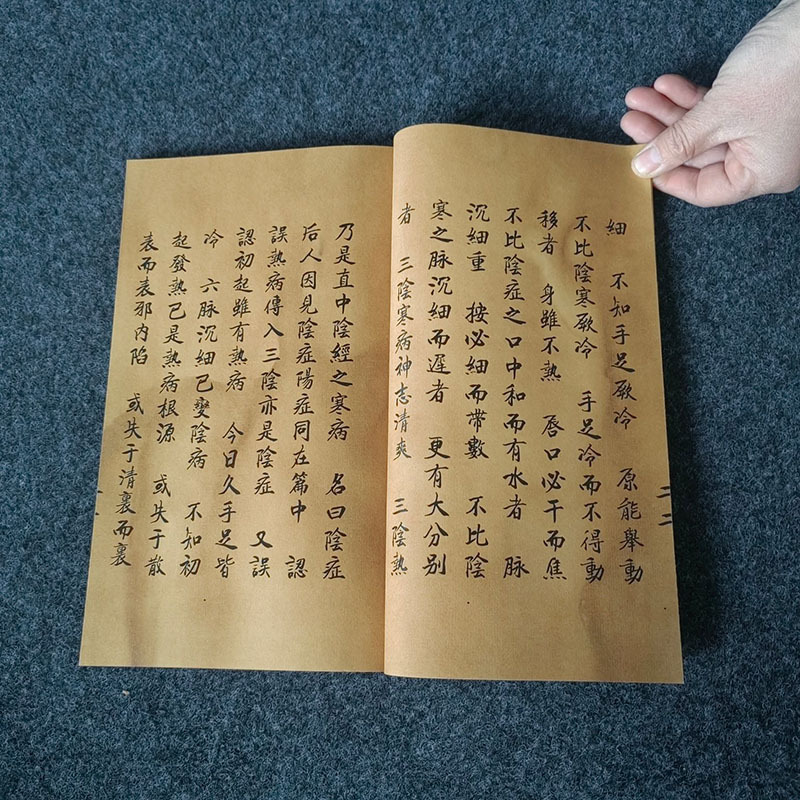 細　不知手足厥冷　原能舉動
不比陰寒厥冷　手足冷而不得動
移者　身雖不熱　唇口必干而焦
不比陰症之口中和而有水者　脉
沉細重　按必細而帶數　不比陰
寒之脉沉細而遲者　更有大分別
者　三陰寒病神志清爽　三陰熱
乃是直中陰經之寒病　名曰陰症
后人因見陰症陽症同在篇中　認
誤熱病傳入三陰亦是陰症　又誤
認初起雖有熱病　今日久手足皆
冷　六脉沉細已變陰病　不知初
起發熱已是熱病根源　或失于散
表而表邪内陷　或失于清裏而裏